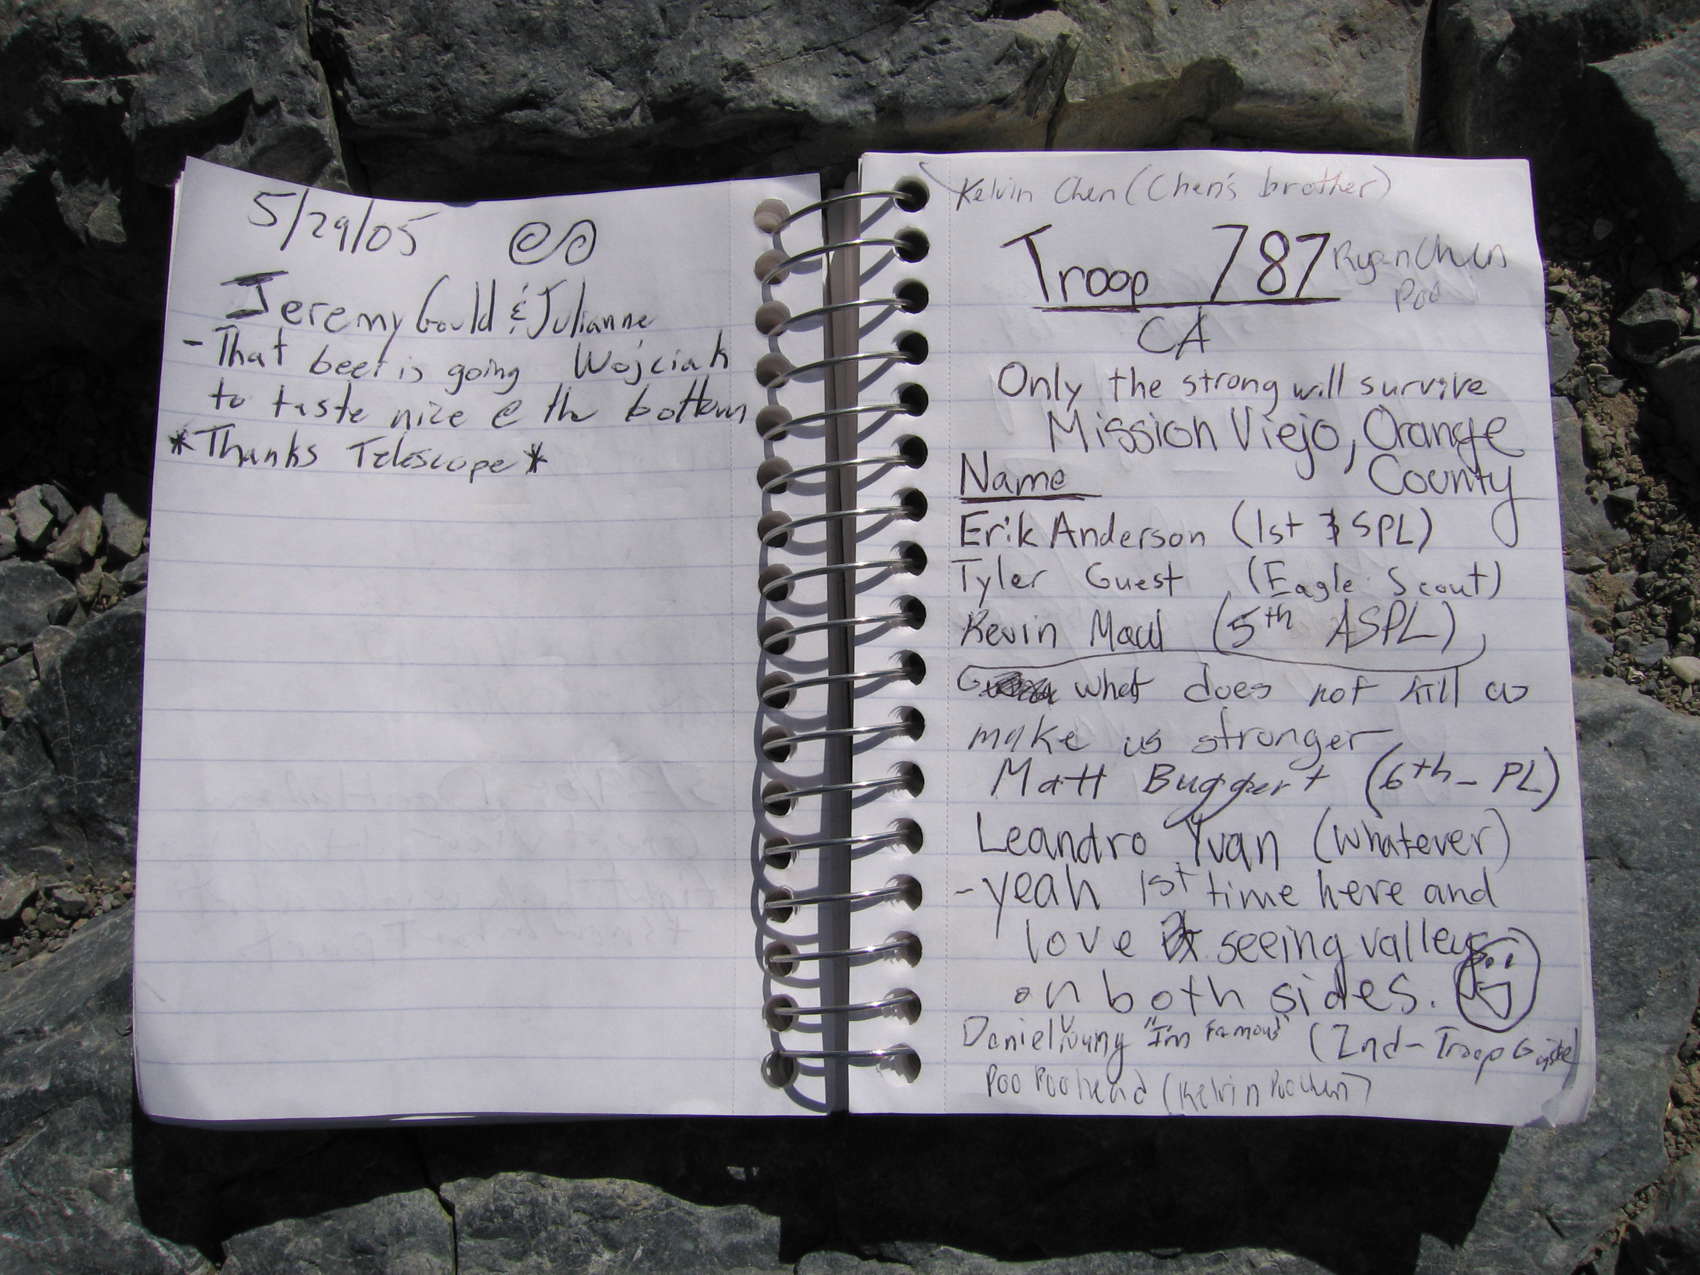 5/29/05
Jeremy Gould & Julianne
Wojciak
- That beer is going
to taste nice @ the bottom
*Thanks Telescope*
Kelvin Chen (Chen's brother)
Troop 787
Ryan Chen
Poo
CA
Only the strong will survive
Mission Viejo, Orange
County
Name
Erik Anderson (1st SPL)
Tyler Guest (Eagle Scout)
Kevin (5th ASPL)
what does not kill us
make us stronger
Matt Buggert (6th - PL)
Leandro Yvan (whatever)
- yeah 1st time here and
love seeing valleys
on both sides.
Daniel "I'm Famous" (2nd - Troop
Poo Poohead (Kelvin Poochen)